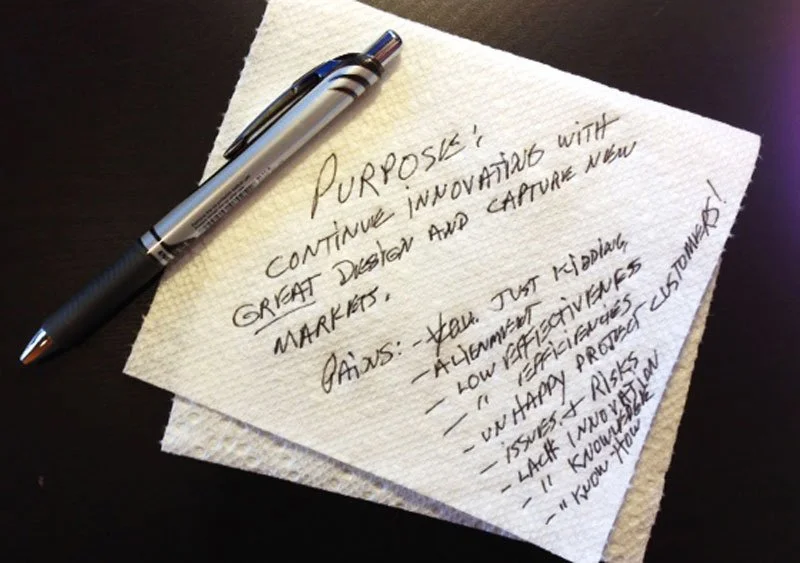 PURPOSE:
CONTINUE INNOVATING WITH
GREAT DESIGN AND CAPTURE NEW
MARKETS.
PAINS: - YOU. JUST KIDDING
- ALIGNMENT
- LOW EFFECTIVENESS
- " EFFICIENCIES
- UNHAPPY PROJECT CUSTOMERS!
- ISSUES + RISKS
- LACK INNOVATION
- " KNOWLEDGE
- " KNOW-HOW